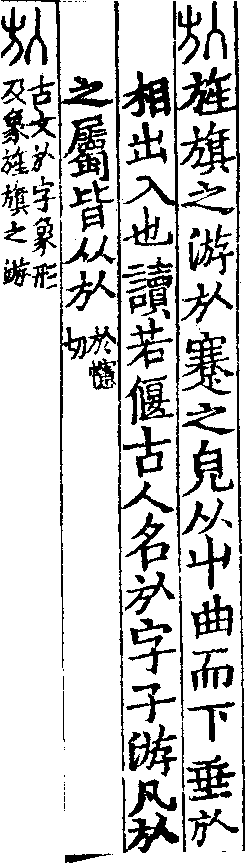 㫃旌旗之游㫃蹇之皃从屮曲而下垂於
相出入也讀若偃古人名㫃字子游凡㫃
之屬皆从㫃
於幰
切
㫃
古文㫃字象形
及象旌旗之游